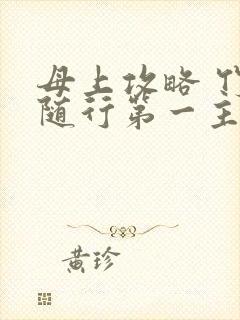 母上攻略
随行第一主
黄珍